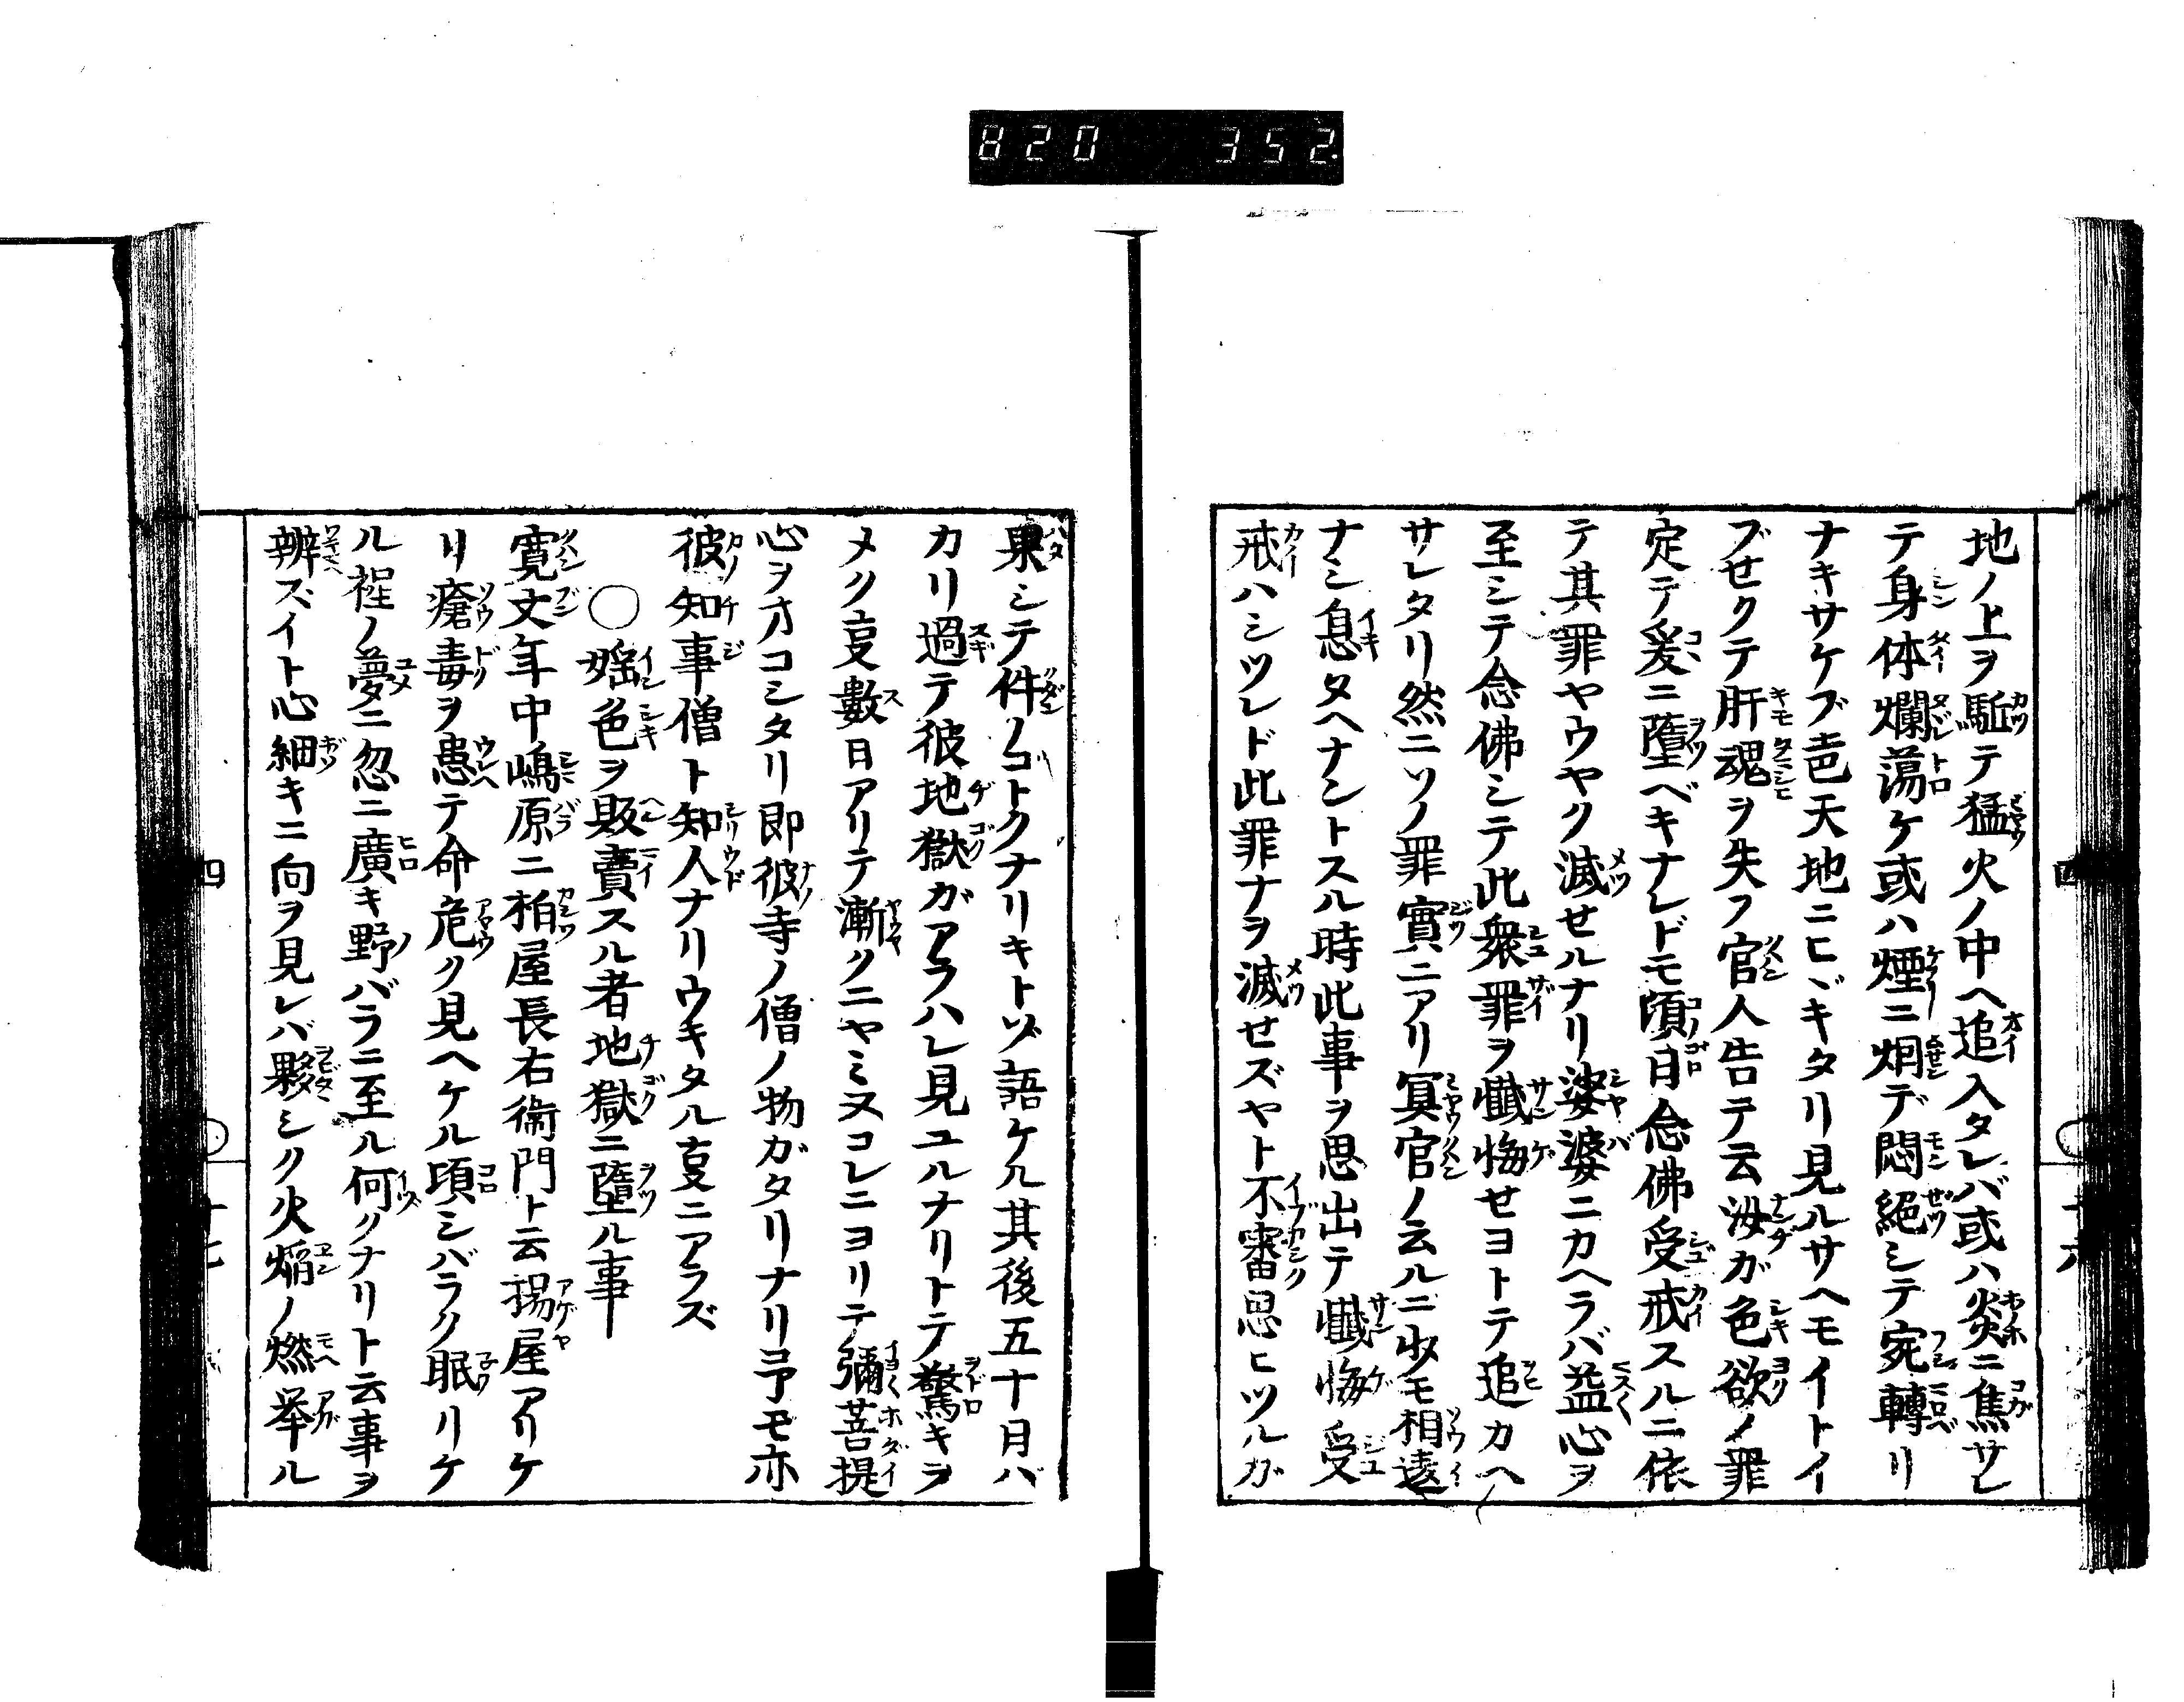 820 352
地ノ上ヲ駈テ猛火ノ中ヘ追入タレバ或ハ炎ニ焦サレ
テ身体爛蕩ケ或ハ煙ニ烟デ悶絕シテ宛轉リ
ナキサケブ壱天地ニヒヾキタリ見ルサヘモイトイ
ブせクテ肝魂ヲ失フ官人告テ云汝ガ色欲ノ罪
定テ爰ニ墮ベキナレドモ頃日念佛受戒スルニ依
テ其罪ヤウヤク滅せルナリ娑婆ニカヘラバ益心ヲ
至シテ念佛シテ此衆罪ヲ懺悔せヨトテ追カヘ
サレタリ然ニソノ罪實ニアリ冥官ノ云ルニ少モ相違
ナシ息タヘナントスル時此事ヲ思出テ懺悔受
戒ハシツレド此罪ナヲ滅せズヤト不審思ヒツルガ
果シテ件ノゴトクナリキトゾ語ケル其後五十日バ
カリ過テ彼地獄ガアラハレ見ユルナリトテ驚キヲ
メク㕝數日アリテ漸クニヤミヌコレニヨリテ彌菩提
心ヲオコシタリ即彼寺ノ僧ノ物ガタリナリ予モ亦
彼知事僧ト知人ナリウキタル㕝ニアラズ
○婬色ヲ販賣スル者地獄ニ墮ル事
寛文年中嶋原ニ柏屋長右衛門ト云揚屋アリケ
リ瘡毒ヲ患テ命危ク見ヘケル頃シバラク眠リケ
ル裎ノ夢ニ忽ニ廣キ野バラニ至ル何クナリト云事ヲ
辨ズイト心細キニ向ヲ見レバ夥シク火焔ノ燃挙ル
四